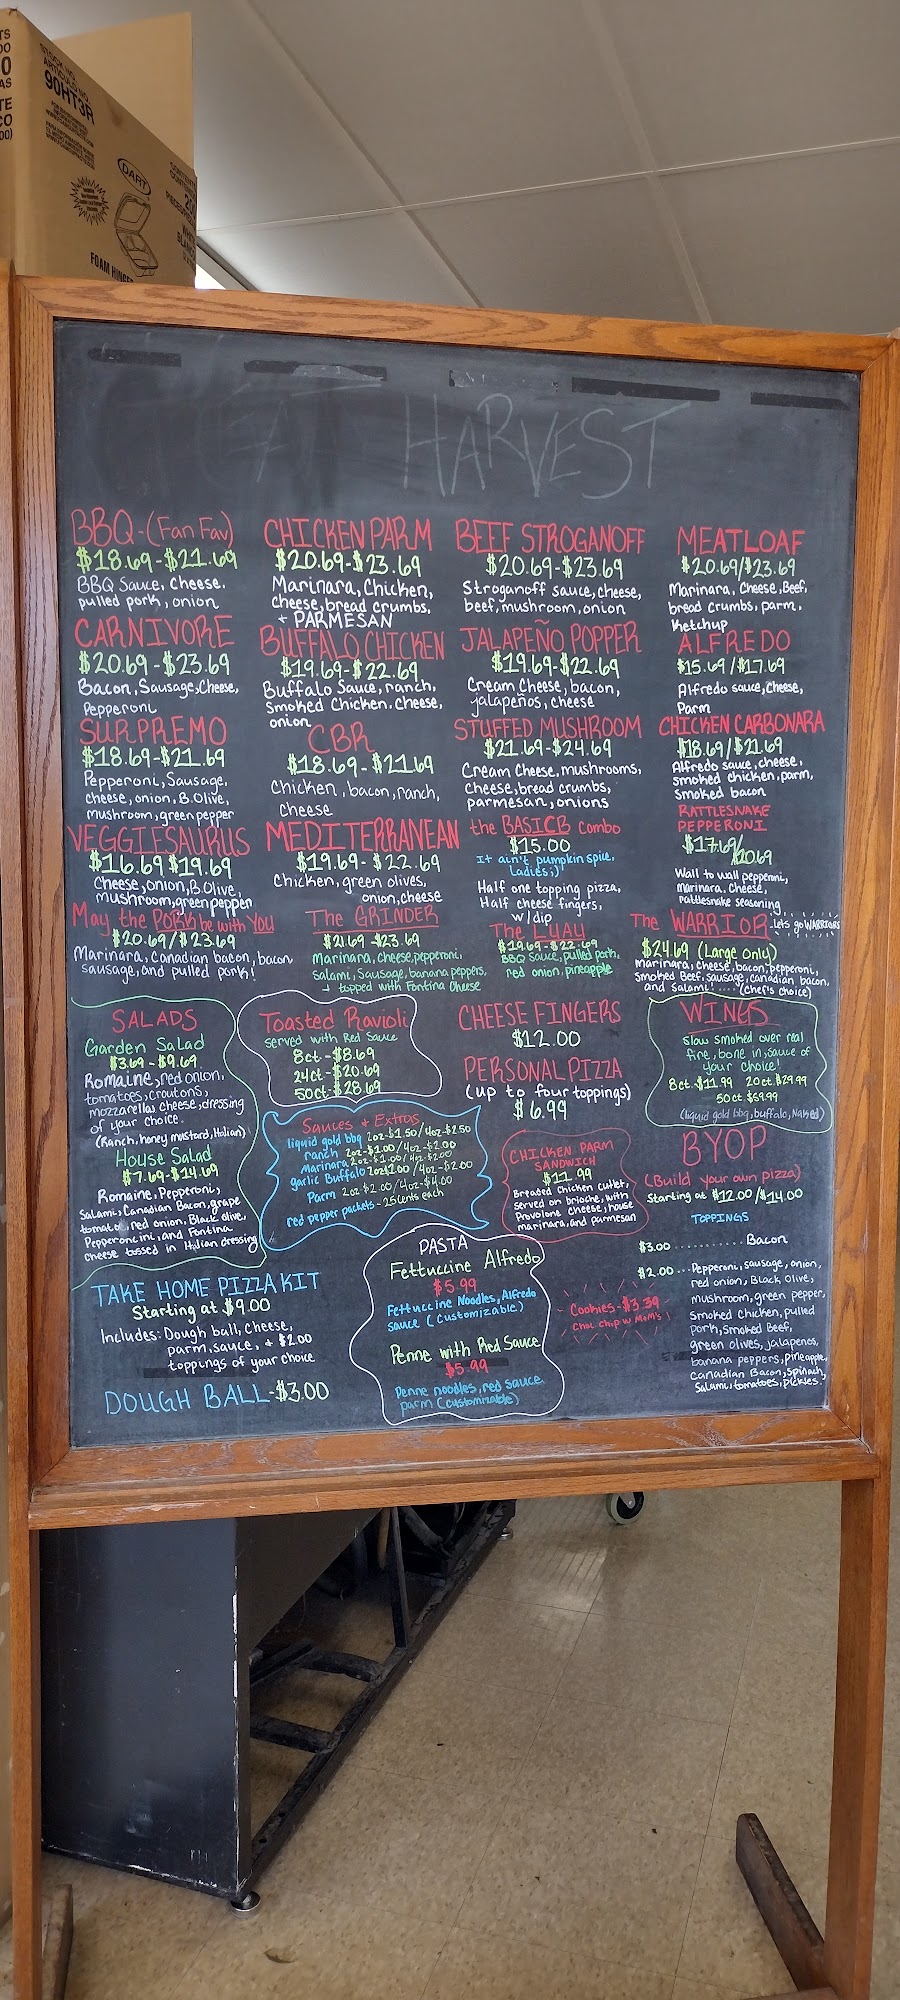 STOCK NO.
ARTICULO NO.
90HT3R
DART
FOAM HINGE
EAT HARVEST
BBQ-(Fan Fav)
$18.69-$21.69
BBQ Sauce, Cheese,
pulled pork, onion
CARNIVORE
$20.69-$23.69
Bacon, Sausage, Cheese,
Pepperoni
SURPREMO
$18.69-$21.69
Pepperoni, Sausage,
cheese, onion, B.Olive,
mushroom, green pepper
VEGGIESAURUS
$16.69 $19.69
Cheese, onion, B.Olive,
mushroom, green pepper
May the PORK be with You
$20.69/$23.69
Marinara, Canadian bacon, bacon
sausage, and pulled pork!
CHICKEN PARM
$20.69-$23.69
Marinara, Chicken,
cheese, bread crumbs,
+ PARMESAN
BUFFALO CHICKEN
$19.69-$22.69
Buffalo Sauce, ranch,
Smoked Chicken, cheese,
onion
CBR
$18.69-$21.69
Chicken, bacon, ranch,
Cheese
MEDITERRANEAN
$19.69-$22.69
Chicken, green olives,
onion, cheese
The GRINDER
$21.69-$23.69
Marinara, cheese, pepperoni,
Salami, Sausage, banana peppers,
+ topped with Fontina Cheese
BEEF STROGANOFF
$20.69-$23.69
Stroganoff sauce, cheese,
beef, mushroom, onion
JALAPEÑO POPPER
$19.69-$22.69
Cream Cheese, bacon,
jalapeños, cheese
STUFFED MUSHROOM
$21.69-$24.69
Cream Cheese, mushrooms,
Cheese, bread crumbs,
parmesan, onions
the BASICB Combo
$15.00
It ain't pumpkin spice,
Ladies;)
Half one topping pizza,
Half cheese fingers,
w/dip
The LUAU
$19.69-$22.69
BBQ Sauce, pulled pork,
red onion, pineapple
MEATLOAF
$20.69/$23.69
Marinara, Cheese, Beef,
bread crumbs, parm,
Ketchup
ALFREDO
$15.69/$17.69
Alfredo sauce, Cheese,
Parm
CHICKEN CARBONARA
$18.69/$21.69
Alfredo sauce, cheese,
smoked chicken, parm,
Smoked bacon
RATTLESNAKE
PEPPERONI
$17.69/
$20.69
Wall to wall pepperoni,
Marinara, Cheese,
Rattlesnake seasoning
The WARRIOR -Lets go WARRIORS
$24.69 (Large Only)
marinara, cheese, bacon, pepperoni,
Smoked Beef, sausage, canadian bacon,
and Salami! .... (chef's choice)
SALADS
Garden Salad
$3.69 - $9.69
Romaine, red onion,
tomatoes, croutons,
mozzarella cheese, dressing
of your choice.
(Ranch, honey mustard, Italian)
House Salad
$7.69-$14.69
Romaine, Pepperoni,
Salami, Canadian Bacon, grape
tomato, red onion, Black olive,
Pepperoncini, and Fontina
cheese tossed in Italian dressing
Toasted Ravioli
Served with Red Sauce
8ct-$8.69
24ct-$20.69
50ct-$28.69
Sauces & Extras
liquid gold bbq 2oz-$1.50/4oz-$2.50
ranch 2oz-$1.00/4oz-$2.00
Marinara 2oz-$1.00/4oz-$2.00
garlic Buffalo 2oz $1.00/4oz-$2.00
Parm 2oz $2.00/4oz-$4.00
red pepper packets-25cents each
CHEESE FINGERS
$12.00
PERSONAL PIZZA
(up to four toppings)
$6.99
CHICKEN PARM
SANDWICH
$11.99
Breaded Chicken cutlet,
served on brioche, with
Provolone cheese, house
marinara, and parmesan
WINGS
slow smoked over real
fire, bone in, sauce of
your choice!
8ct-$11.99 20ct $29.99
50ct $59.99
(liquid gold bbq, buffalo, Naked)
BYOP
(Build your own pizza)
Starting at $12.00/$14.00
TOPPINGS
$3.00 .......... Bacon
$2.00... Pepperoni, sausage, onion,
red onion, Black olive,
mushroom, green pepper,
Smoked chicken, pulled
pork, smoked Beef,
green olives, jalapenos,
banana peppers, pineapple,
Canadian Bacon, spinach,
Salami, tomatoes, pickles.
TAKE HOME PIZZA KIT
Starting at $9.00
Includes: Dough ball, Cheese,
parm, sauce, + $2.00
toppings of your choice
DOUGH BALL-$3.00
PASTA
Fettuccine Alfredo
$5.99
Fettuccine Noodles, Alfredo
sauce (Customizable)
Penne with Red Sauce
$5.99
Penne noodles, red sauce
parm (customizable)
Cookies-$3.39
Choc Chip w M&M's